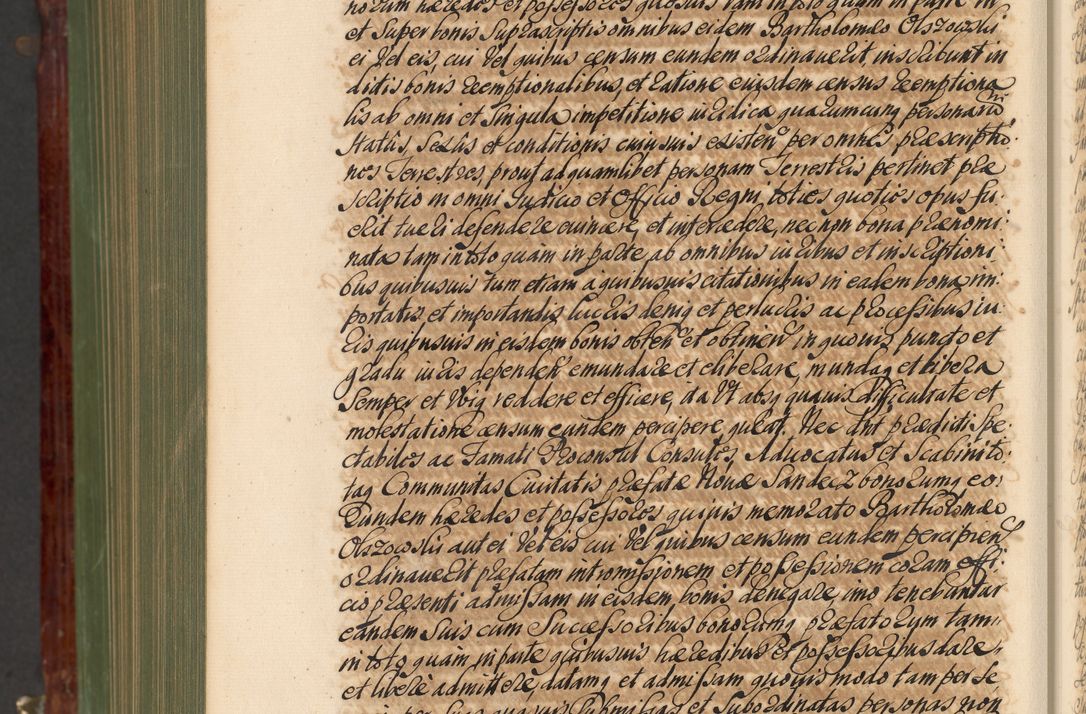 norum hæredes et possessores quosuis tam in toto quam in parte in
et super bonis supra scriptis omnibus eidem Bartholomæo Olszowski
ei vel eis, cui vel quibus censum eundem ordinauerit, inscribunt in
ditis bonis reemptionalibus, et ratione eiusdem census reemptiona
lis ab omni et singula impetitione iuridica quarumcunq personarū
statûs, sexûs et conditionis cuiusuis existen per omnes præscriptio
nes Terrestres, prout ad quamlibet personam Terrestris pertinet præ
scriptio in omni Iudicio et Officio Regni, toties quoties opus fu
erit tueri defendere euincere, et intercedere, nec non bona prænomi
nata tam in toto quam in parte ab omnibus iuribus et inscriptioni
bus quibusuis tum etiam a quibusuis citationibus in eadem bona im
portatis et importandis lucris deniq et perlucris ac processibus iu
ris quibusuis in eisdem bonis obten et obtinen in quouis puncto et
gradu iuris dependen emundare et eliberare, mundaq et libera
semper et vbiq reddere et efficere, ita vt absq quauis difficultate et
molestatione censum eundem percipere queat. Nec dnt prædicti spe
ctabiles ac Famati Proconsul Consules Aduocatus et Scabini to
taq Communitas Ciuitatis præfatæ Nouæ Sandecz bonorumq eo
rundem hæredes et possessores quiuis memorato Bartholomæo
Olszowski aut ei vel eis cui vel quibus censum eundem percipien
ordinauerit præfatam intromissionem et possessionem coram offi
cio præsenti admissam in eisdem bonis denegare, imo tenebuntur
eandem suis cum Successoribus bonorumq præfatorum tam
in toto quam in parte quibusuis hæredibus et possessoribus dare
et liberè admittere, datamq et admissam quouis modo tam per se
submissas et subordinatas personas non